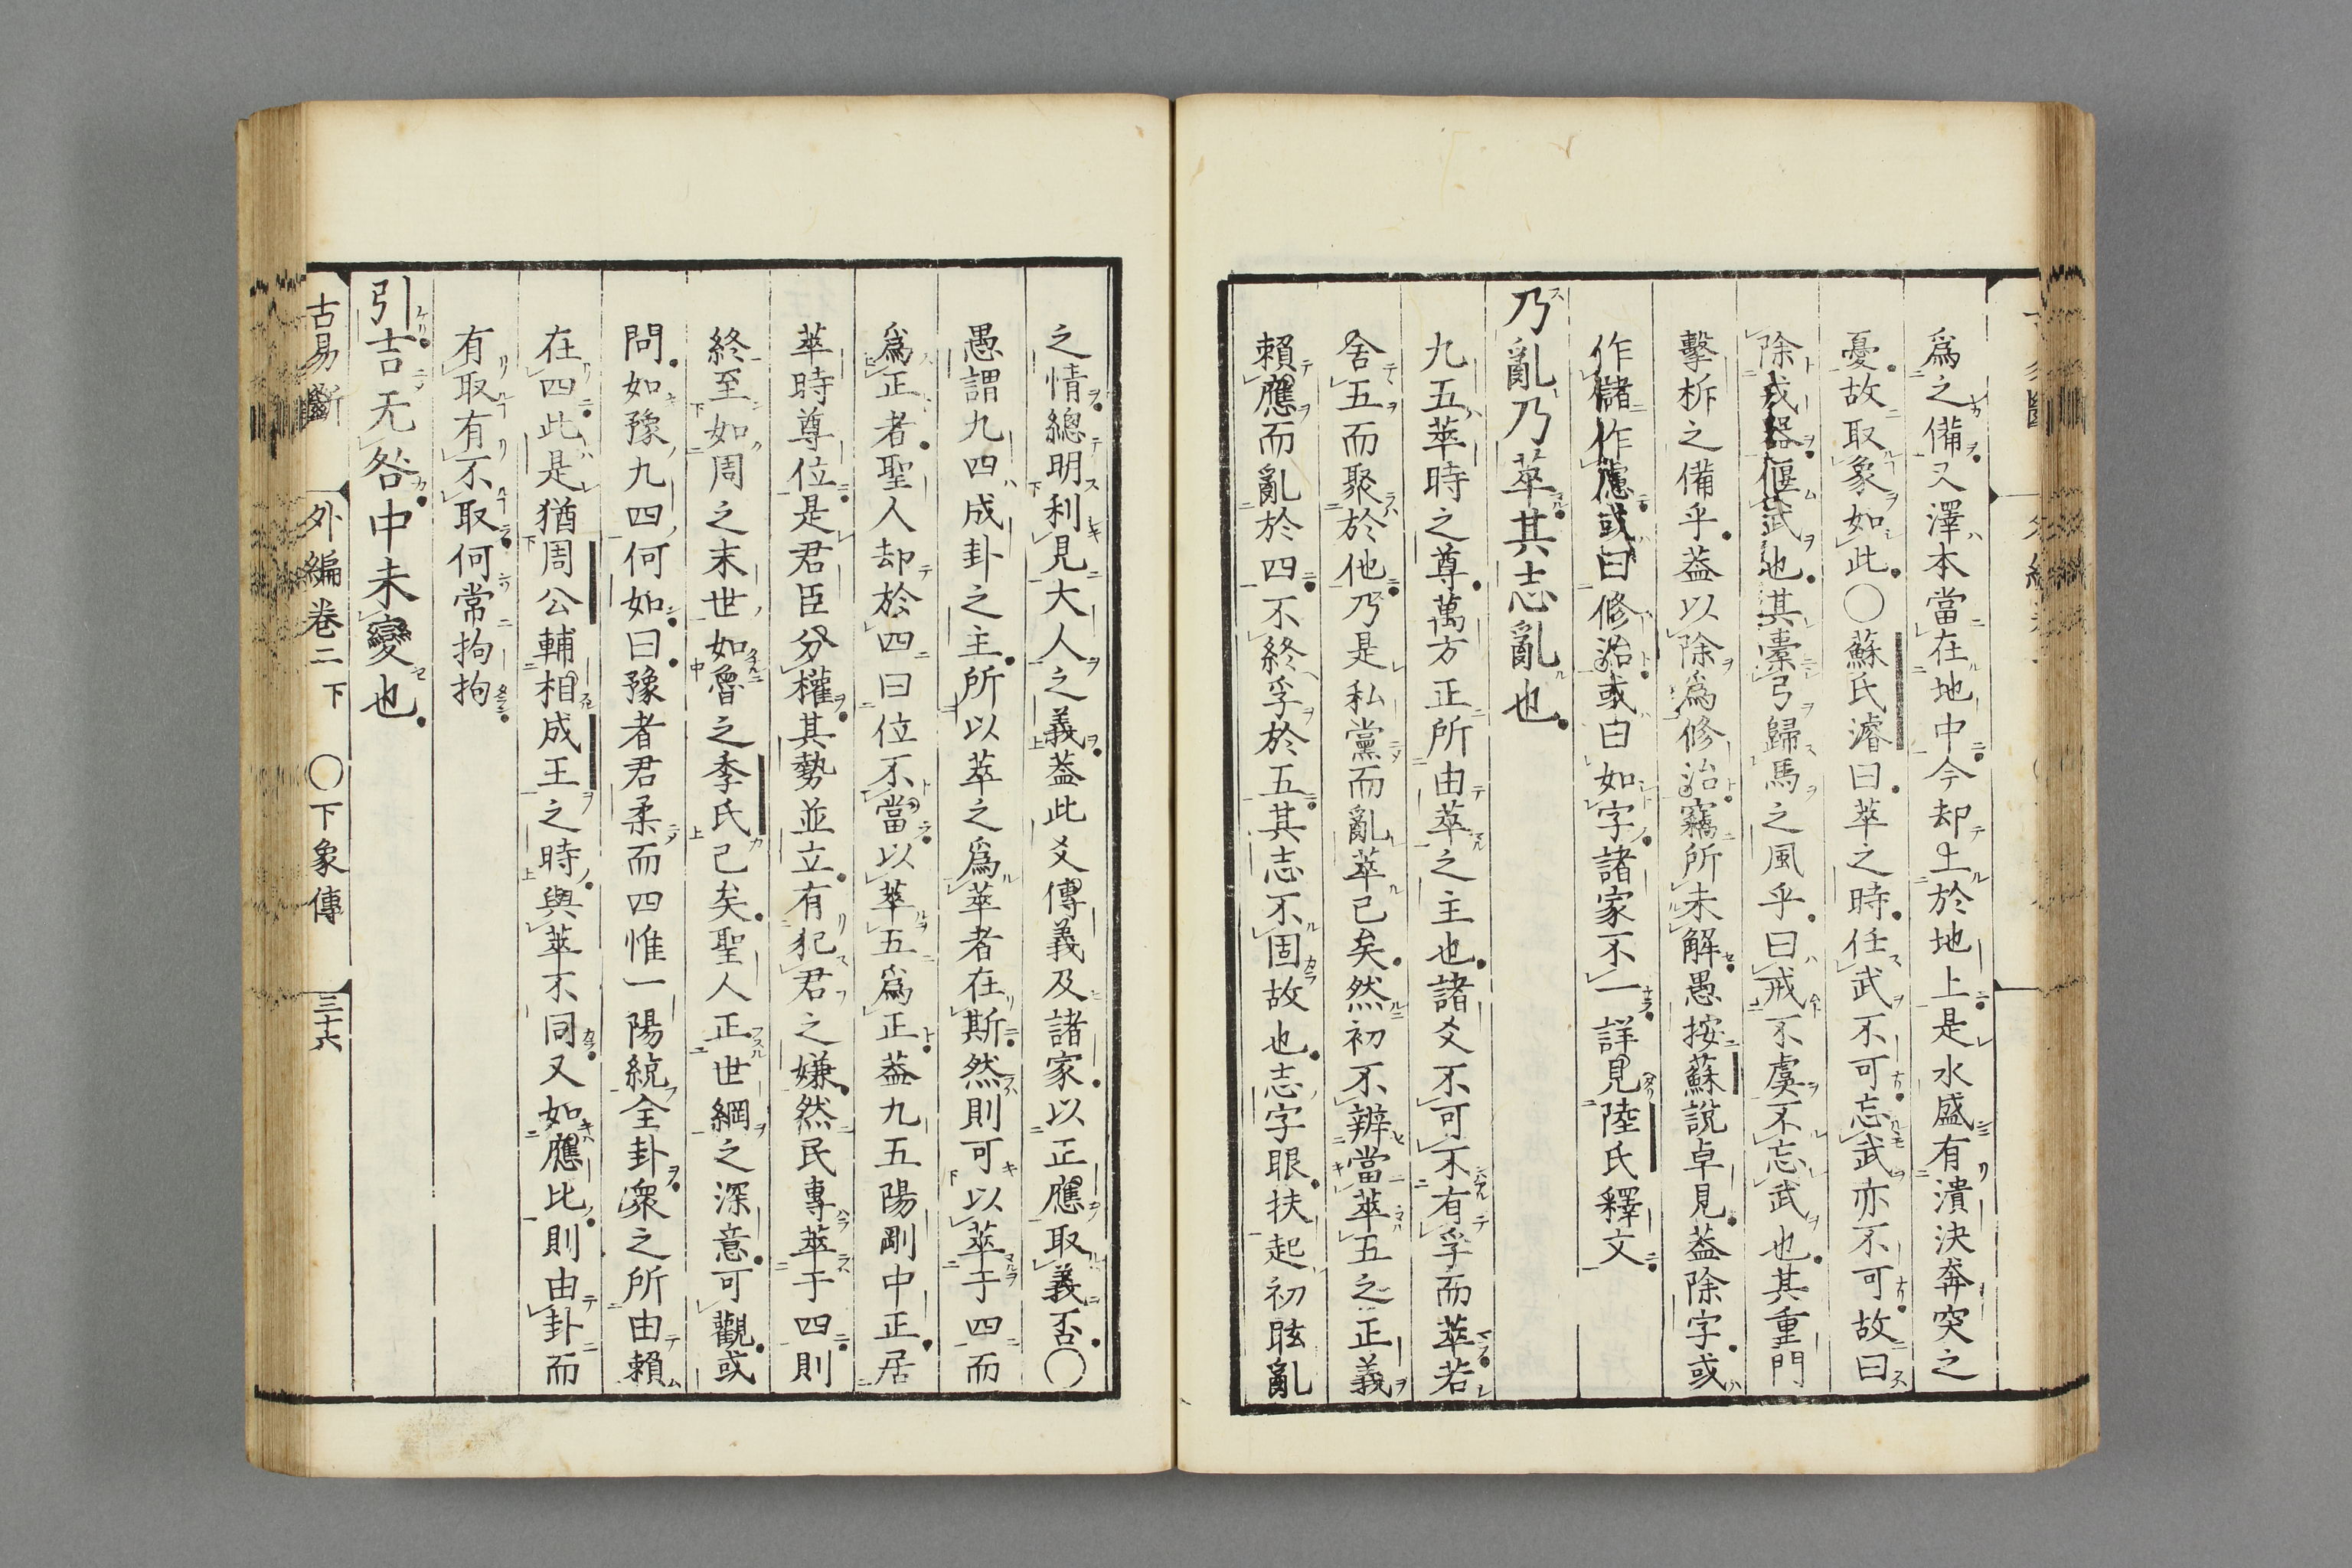 爲之備又澤本當在地中今却上於地上是水盛有潰決奔突之
憂故取象如此〇蘇氏濬曰萃之時任武不可忘武亦不可故曰
除戎器偃武也其櫜弓歸馬之風乎曰戒不虞不忘武也其重門
擊柝之備乎葢以除爲修治竊所未解愚按蘇說卓見葢除字或
作儲作慮或曰修治或曰如字諸家不一詳見陸氏釋文
乃亂乃萃其志亂也
九五萃時之尊萬方正所由萃之主也諸爻不可不有孚而萃若
舍五而聚於他乃是私黨而亂萃已矣然初不辨當萃五之正義
賴應而亂於四不終孚於五其志不固故也志字眼扶起初眩亂
之情總明利見大人之義葢此爻傳義及諸家以正應取義否〇
愚謂九四成卦之主所以萃之爲萃者在斯然則可以萃于四而
爲正者聖人却於四曰位不當以萃五爲正葢九五陽剛中正居
萃時尊位是君臣分權其勢並立有犯君之嫌然民專萃于四則
終至如周之末世如魯之季氏已矣聖人正世綱之深意可觀或
問如豫九四何如曰豫者君柔而四惟一陽統全卦衆之所由賴
在四此是猶周公輔相成王之時與萃不同又如應比則由卦而
有取有不取何常拘拘
引吉无咎中未變也
古易斷　外編卷二下　〇下象傳　三十六